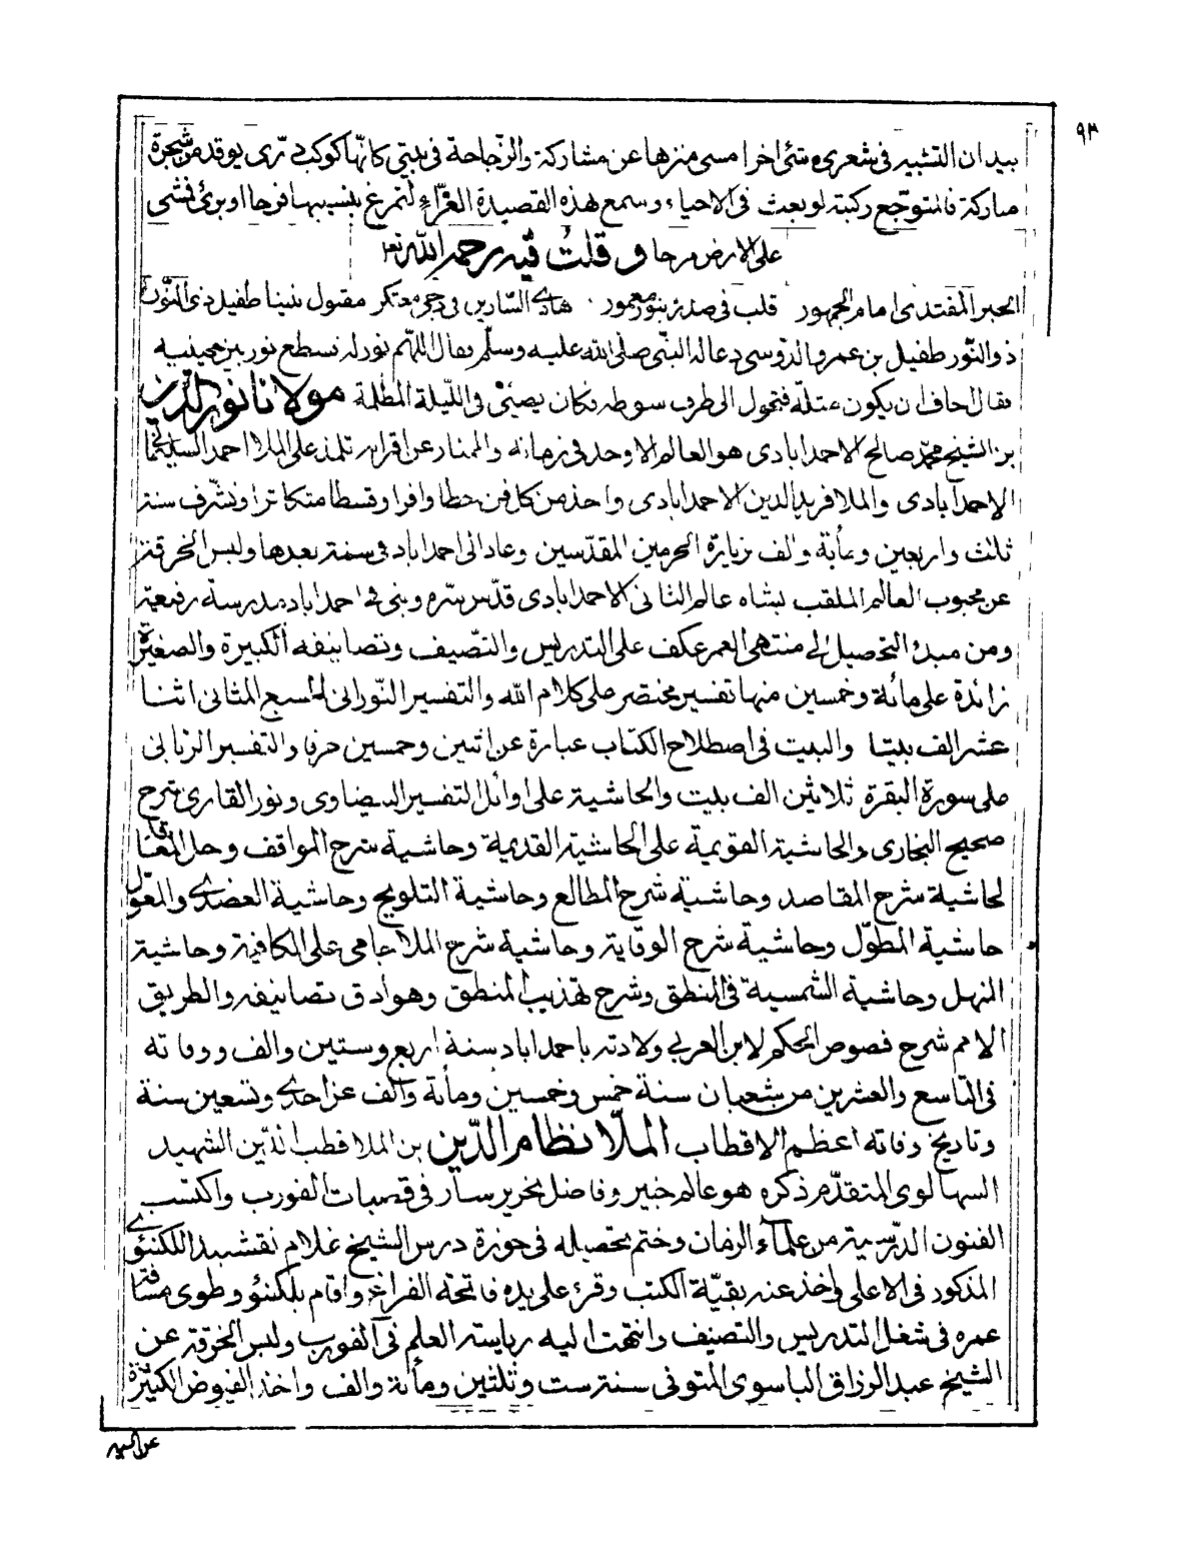 ٩٣
بيدان التشبيه فى شعرى وشئ اخرا مسى منزها عن مشاركة والزجاجة فى بيتى كانها كوكب درى يوقد من شجرة
مباركة فالمتوجع ركبته لو بعث فى الاحياء وسمع هذه القصيدة الغراء لتمرغ بنسيبها فرحا اوبرئ فمشى
على الارض مرحا وقلت فيه رحمه الله تع
الحبر المقتدى امام الجمهور قلب فى صدره بنور معمور هادى السادين فى دجى معتكر مقبول نبينا طفيل ذى النور
ذو النور طفيل بن عمرو الدوسى دعا له النبى صلى الله عليه وسلم فقال اللهم نور له فسطع نور بين عينيه
فقال اخاف ان يكون مثلة فتحول الى طرف سوطه فكان يضئ فى الليلة المظلمة مولانا نور الدين
بن الشيخ محمد صالح الاحمدابادى هو العالم الاوحد فى زمانه والممتاز عن اقرانه تلمذ على الملا احمد السليمانى
الاحمدآبادى والملا فريد الدين الاحمدابادى واخذ من كل فن حظا وافرا وقسطا متكاثرا وتشرف سنة
ثلاث واربعين ومأية والف بزيارة الحرمين المقدسين وعاد الى احمداباد فى سنة بعدها ولبس الخرقة
عن محبوب العالم الملقب بشاه عالم الثانى الاحمدابادى قدس سره وبنى فى احمداباد مدرسة رفيعة
ومن مبدء التحصيل الى منتهى العمر عكف على التدريس والتصنيف وتصانيفه الكبيرة والصغيرة
زائدة على مائة وخمسين منها تفسير مختصر على كلام الله والتفسير النورانى للسبع المثانى اثنا
عشر الف بيتا والبيت فى اصطلاح الكتاب عبارة عن اثنين وخمسين حرفا والتفسير الربانى
على سورة البقرة ثلاثين الف بيت والحاشية على اوائل التفسير البيضاوى ونور القارى شرح
صحيح البخارى والحاشية القويمة على الحاشية القديمة وحاشية شرح المواقف وحل المعاقد
لحاشية شرح المقاصد وحاشية شرح المطالع وحاشية التلويح وحاشية العضدى والمعول
حاشية المطول وحاشية شرح الوقاية وحاشية شرح الملا جامى على الكافية وحاشية
المنهل وحاشية الشمسية فى المنطق وشرح تهذيب المنطق وهو ادق تصانيفه والطريق
الامم شرح فصوص الحكم لابن العربى ولادته باحمداباد سنة اربع وستين والف ووفاته
فى التاسع والعشرين من شعبان سنة خمس وخمسين ومأة والف عن احدى وتسعين سنة
وتاريخ وفاته اعظم الاقطاب الملا نظام الدين بن الملا قطب الدين الشهيد
السهالوى المتقدم ذكره هو عالم خبير وفاضل نحرير سار فى قصبات الفورب واكتسب
الفنون الدرسية من علماء الزمان وختم تحصيله فى حوزة درس الشيخ غلام نقشبند اللكنوى
المذكور فى الاعلى واخذ عنه بقية الكتب وقرء على يده فاتحة الفراغ واقام بلكنؤ وطوى مسافة
عمره فى شغل التدريس والتصنيف وانتهت اليه رياسة العلم فى الفورب ولبس الخرقة عن
الشيخ عبد الرزاق الباسوى المتوفى سنة ست وثلثين ومأة والف واخذ الفيوض الكثيرة
عن السيد